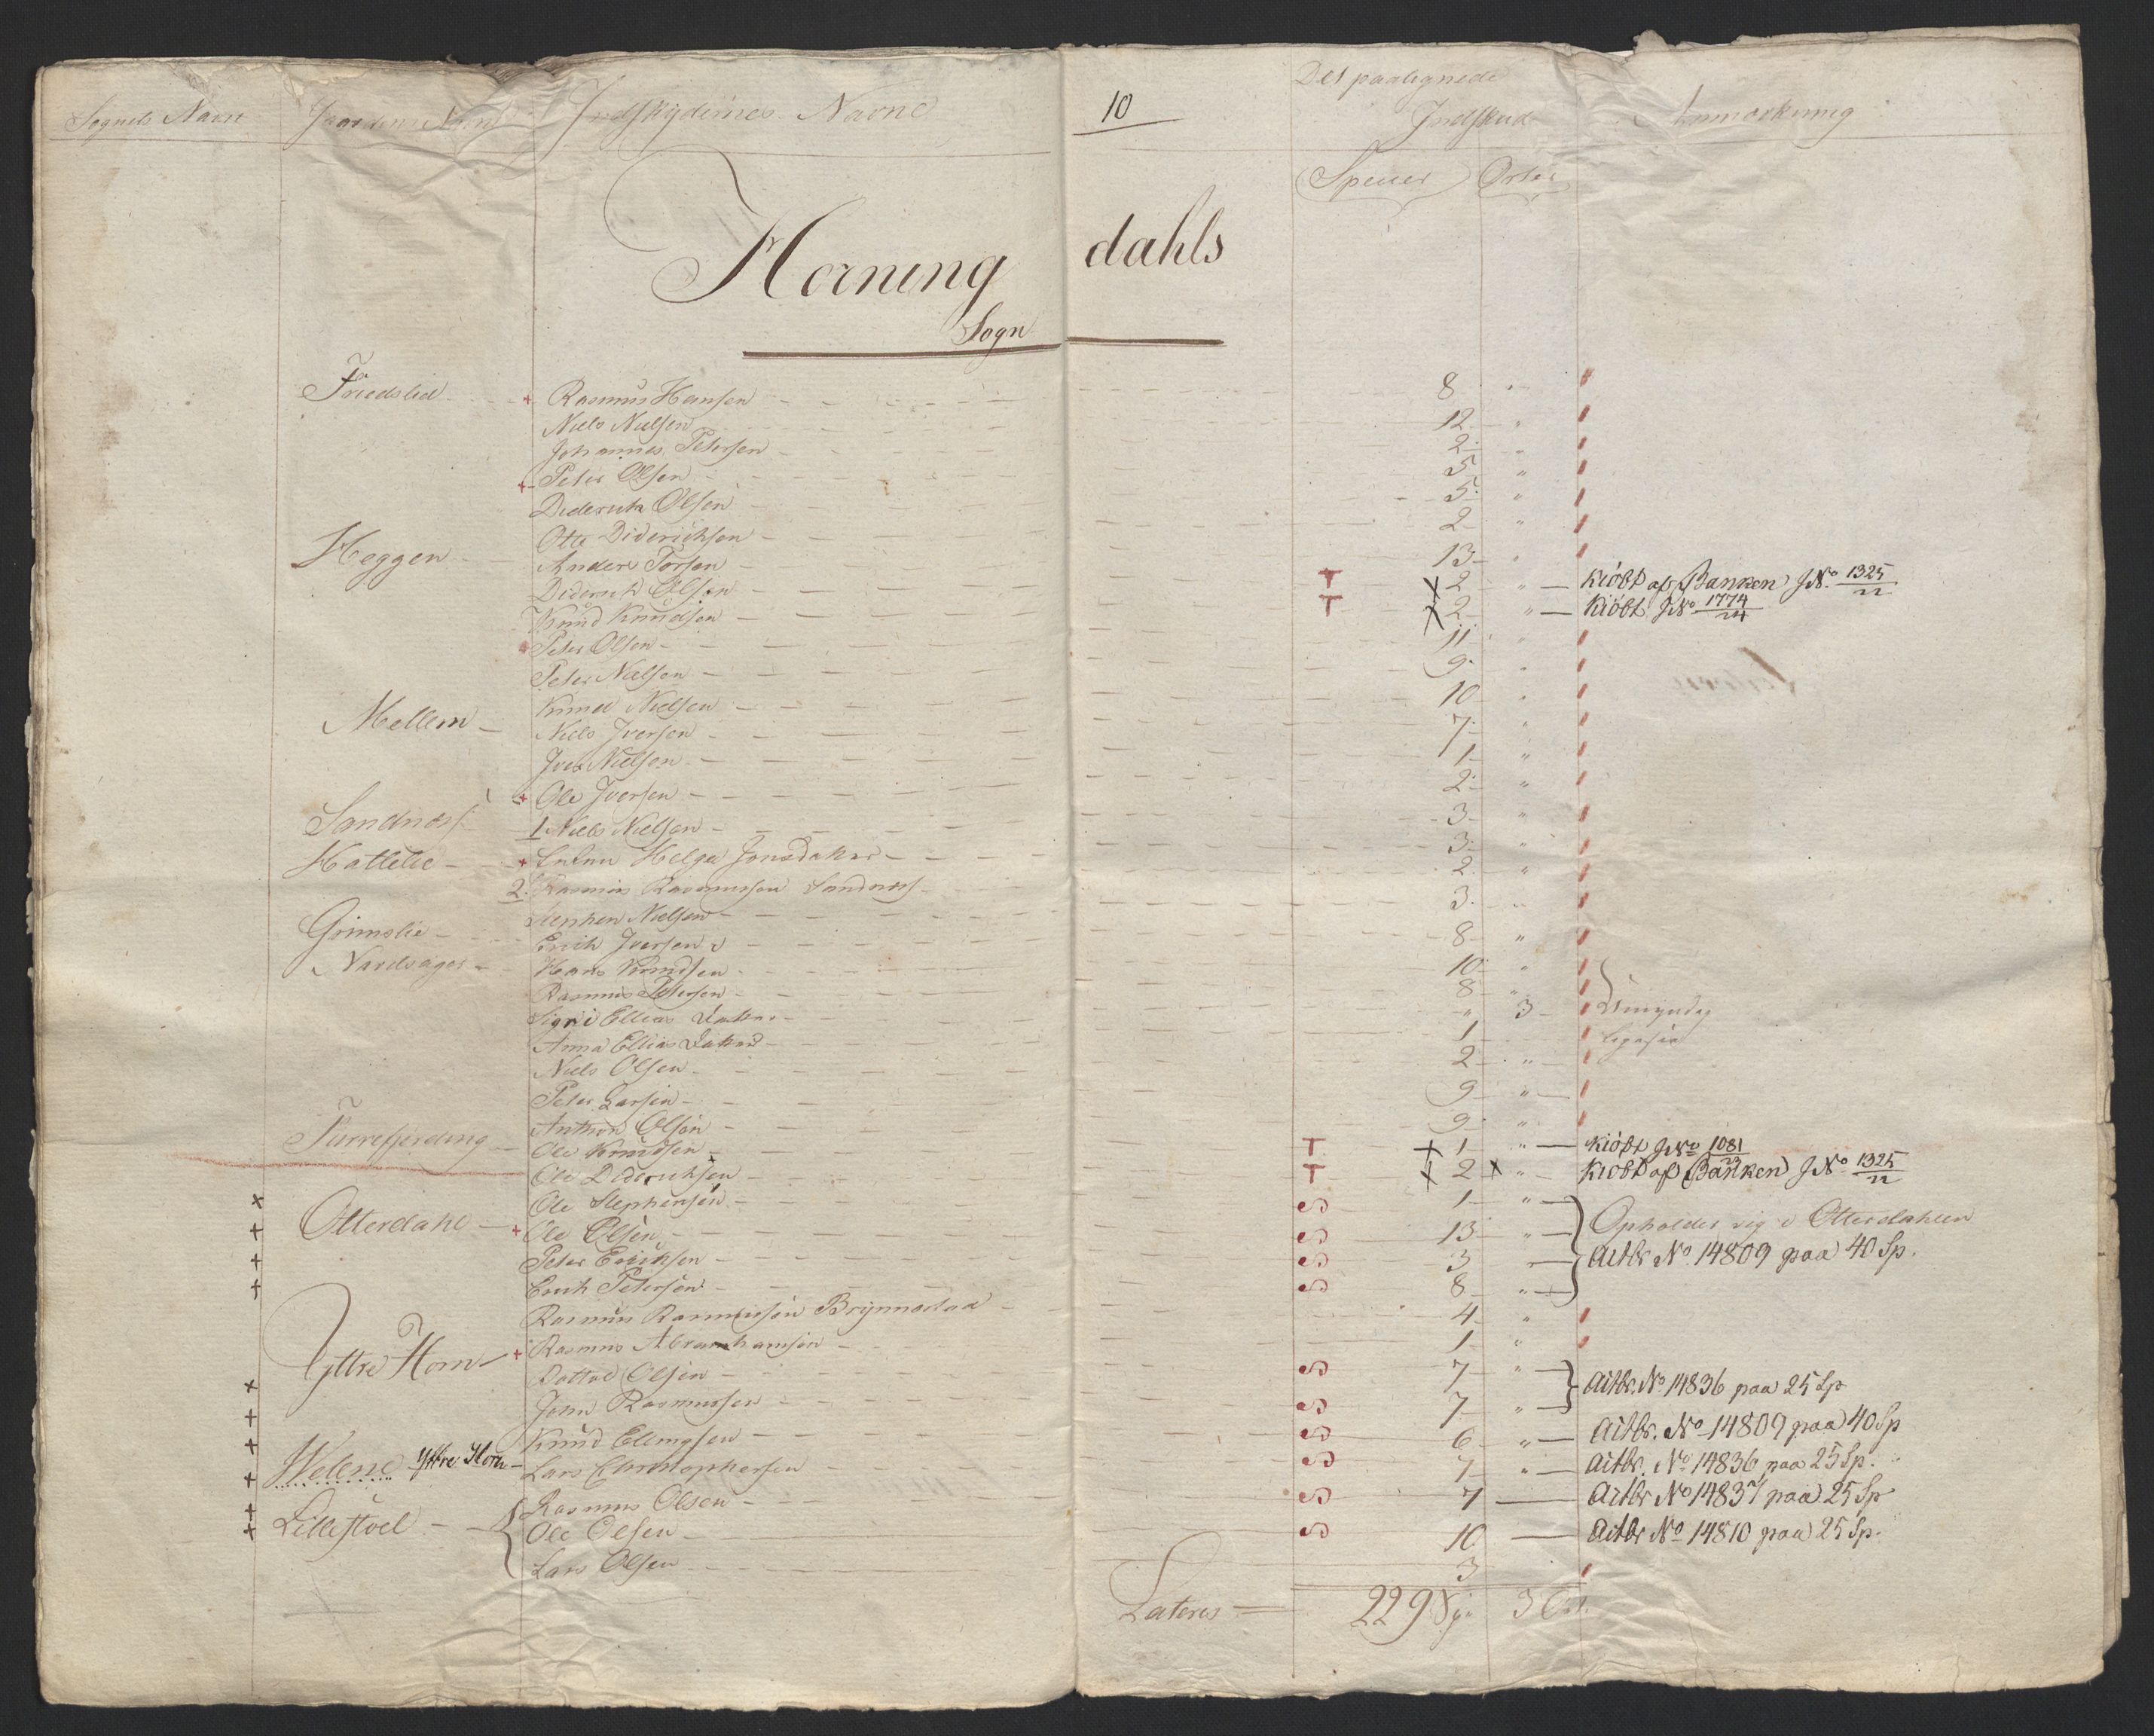 Sognets Navn Gaardens Navn Indskydernes Navne 10 Det paalignede Indskud Anmærkning
Specier Orter
Horning dahls
Sogn
Friedslid + Rasmus Hansen 8
Niels Nielsen 12 "
Johannes Petersen 2 "
+ Peter Olsen 5 "
Diderich Olsen 5 "
Otte Diderichsen 2 "
Heggen Anders Torsen 13 "
Diderich Olsen T x 2 " kiöbt af Banken J№ 1325/22
Knud Knudsen T x 2 " kiöbt J№ 1774/24
Peter Olsen 11 "
Peter Nielsen 9 "
Knud Nielsen 10 "
Mellem Niels Iversen 7 "
Iver Nielsen 1 "
+ Ole Iversen 2 "
Sandnæss 1 Niels Nielsen 3 "
Hatlelie + Enken Helga Jonsdatter 3 "
2. Rasmus Rasmussen Sandnæss 2 "
Grimslie Stephen Nielsen 3 "
Erich Iversen 8 "
Navelsager Hans Knudsen 10 "
Rasmus Petersen 8 "
Sigri Ellias Datter " 3 Umyndig
Anna Ellias Datter 1
Niels Olsen 2 "
Peter Larsen 9 "
Anthon Olsen 9 "
Turrefjerding Ole Knudsen T + 1 " kiöbt J№ 1081/23
Ole Diderichsen T x 2 x " kiöbt af Banken J№ 1325/22
x Ole Stephensen S 1 "
+ Otterdahl + Ole Olsen S 13 " Opholder sig i Otterdahlen
+ Peter Erichsen S 3 Actbr. №. 14809 paa 40 Sp.
+ Erich Petersen S 8 "
Rasmus Rasmussen Brynnestad 4 "
Yttre Horn + Rasmus Abramhamsen 1 "
x Olsen S 7 " Actbr. № 14836 paa 25 Sp
+ John Rasmussen S 7 "
+ Knud Elingsen S 6 " Actbr. № 14809 paa 40 Sp
+ Welene Yttre Horn Lars Christophersen S 7 " Actbr. № 14836 paa 25 Sp.
+ Lillestöel Rasmus Olsen S 7 Actbr № 14837 paa 25 Sp
+ Ole Olsen S 10 Actbr № 14810 paa 25 Sp.
Lars Olsen 3
Lateres 229 Sp. 3 Ort.